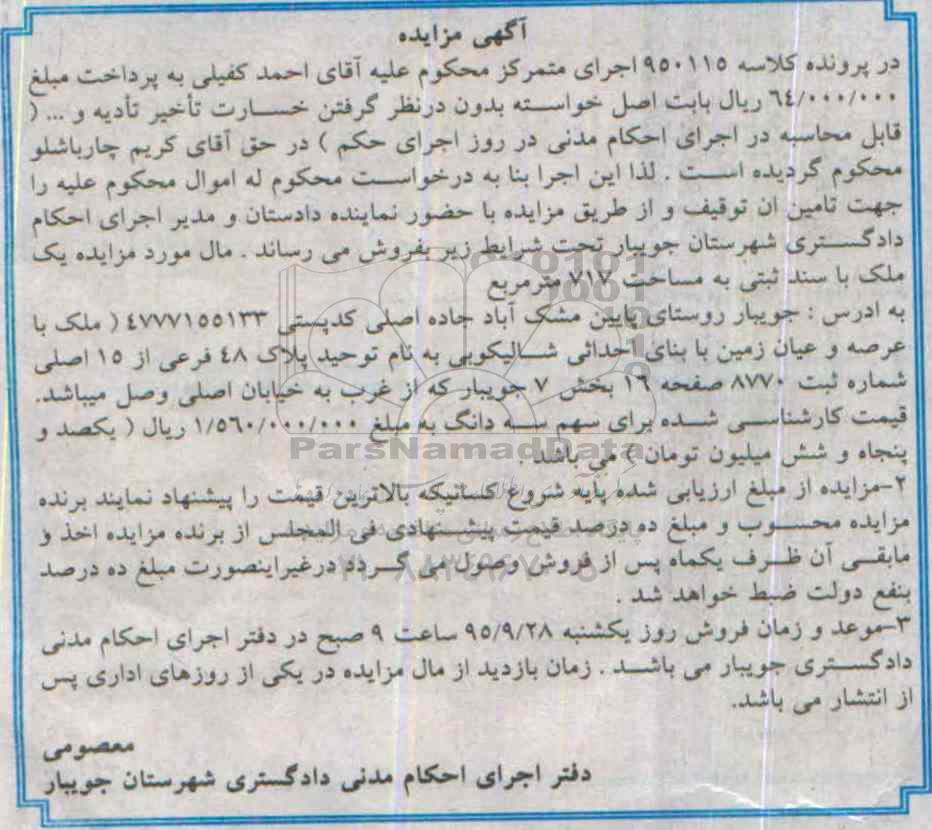 آگهی مزایده
در پرونده کلاسه ۹۵۰۱۱۵ اجرای متمرکز محکوم علیه آقای احمد کفیلی به پرداخت مبلغ
۶۴/۰۰۰/۰۰۰ ریال بابت اصل خواسته بدون درنظر گرفتن خسارت تأخیر تأدیه و ... (
قابل محاسبه در اجرای احکام مدنی در روز اجرای حکم ) در حق آقای کریم چارباشلو
محکوم گردیده است . لذا این اجرا بنا به درخواست محکوم له اموال محکوم علیه را
جهت تامین ان توقیف و از طریق مزایده با حضور نماینده دادستان و مدیر اجرای احکام
دادگستری شهرستان جویبار تحت شرایط زیر بفروش می رساند . مال مورد مزایده یک
ملک با سند ثبتی به مساحت ۷۱۷ مترمربع
به ادرس : جویبار روستای پایین مشک آباد جاده اصلی کدپستی ۴۷۷۷۱۵۵۱۳۳ ( ملک با
عرصه و عیان زمین با بنای احداثی شالیکوبی به نام توحید پلاک ۴۸ فرعی از ۱۵ اصلی
شماره ثبت ۸۷۷۰ صفحه ۱۶ بخش ۷ جویبار که از غرب به خیابان اصلی وصل میباشد.
قیمت کارشناسی شده برای سهم سه دانگ به مبلغ ۱/۵۶۰/۰۰۰/۰۰۰ ریال ( یکصد و
پنجاه و شش میلیون تومان ) می باشد .
ParsNamadData
۲-مزایده از مبلغ ارزیابی شده پایه شروع کسانیکه بالاترین قیمت را پیشنهاد نمایند برنده
مزایده محسوب و مبلغ ده درصد قیمت پیشنهادی فی المجلس از برنده مزایده اخذ و
مابقی آن ظرف یکماه پس از فروش وصول می گردد درغیراینصورت مبلغ ده درصد
بنفع دولت ضبط خواهد شد .
۳-موعد و زمان فروش روز یکشنبه ۹۵/۹/۲۸ ساعت ۹ صبح در دفتر اجرای احکام مدنی
دادگستری جویبار می باشد . زمان بازدید از مال مزایده در یکی از روزهای اداری پس
از انتشار می باشد.
معصومی
دفتر اجرای احکام مدنی دادگستری شهرستان جویبار